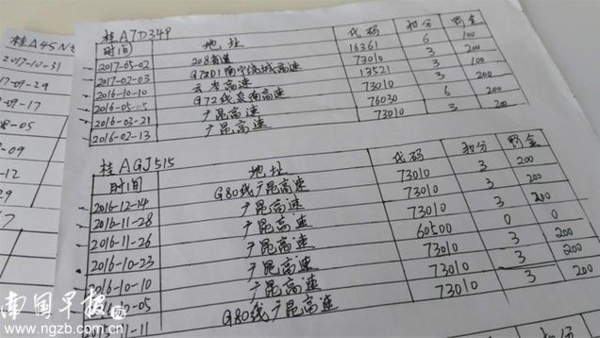 桂A45N
2017-10-31
7-09-17
-08-05
-09
-12
桂A7D34P
时间 地址 代码 扣分 罚金
2017-05-02 208省道 16361 6 100
2017-02-03 G72D1南宁绕城高速 73010 3 200
2016-10-10 云岑高速 13521 3 100
2016-05-05 G72线泉南高速 73010 3 200
2016-03-21 广昆高速 76030 6 200
2016-02-13 广昆高速 73010 3 200
桂AGJ515
时间 地址 代码 扣分 罚金
2016-12-14 G80线广昆高速 73010 3 200
2016-11-28 广昆高速 73010 3 200
2016-11-26 广昆高速 60500 0 0
2016-10-23 广昆高速 73010 3 200
2016-10-10 广昆高速 73010 3 200
10-05 G80线广昆高速 73010 3 200
11-11
南国早报网
www.ngzb.com.cn